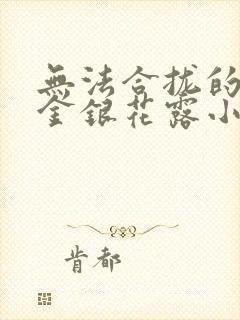 無法合拢的
金銀花露小
肯都